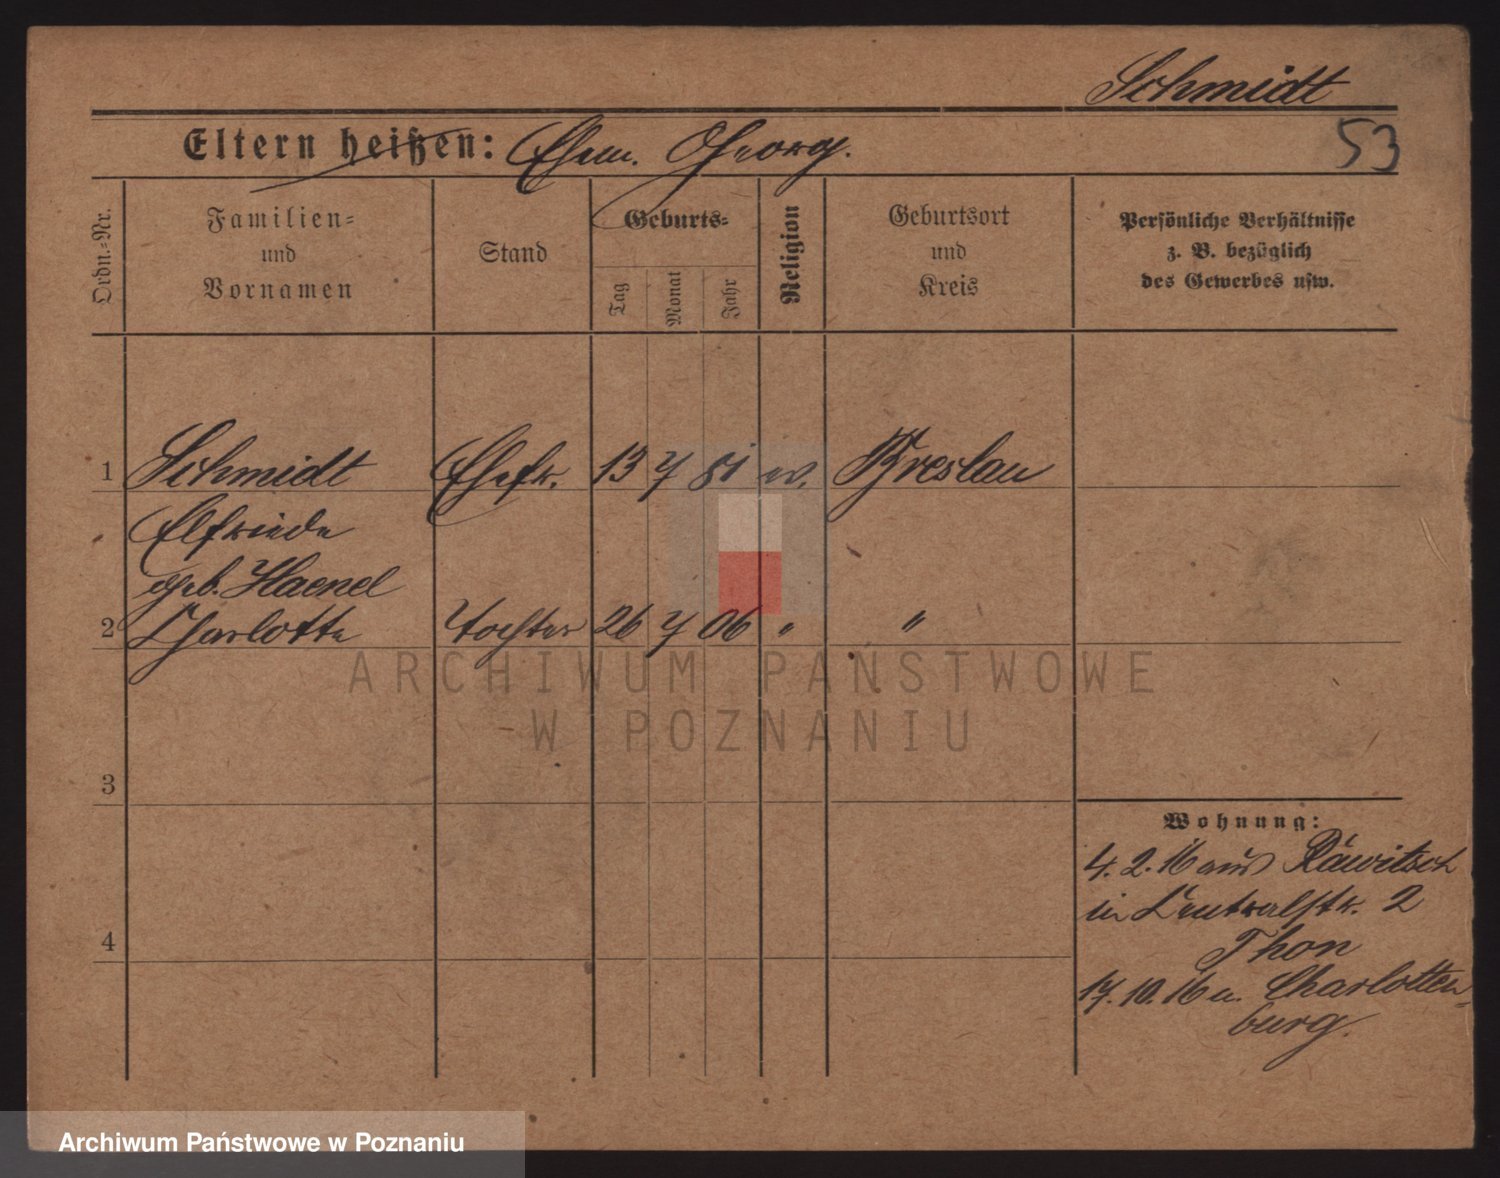 Schmidt
53
Eltern heißen: Ehem. Georg.
Ordn.-Nr.
Familien-
und
Vornamen
Stand
Geburts-
Tag
Monat
Jahr
Religion
Geburtsort
und
Kreis
Persönliche Verhältnisse
z. B. bezüglich
des Gewerbes usw.
1 Schmidt Ehefr. 13 7 81 ev. Breslau
Elfriede
geb. Haenel
2 Charlotte Tochter 26 7 06 " "
3
4
Wohnung:
4. 2. 16 aus Rawitsch
in Centralstr. 2
Thon
17. 10. 16 n. Charlotten-
burg.
ARCHIWUM PAŃSTWOWE
W POZNANIU
Archiwum Państwowe w Poznaniu